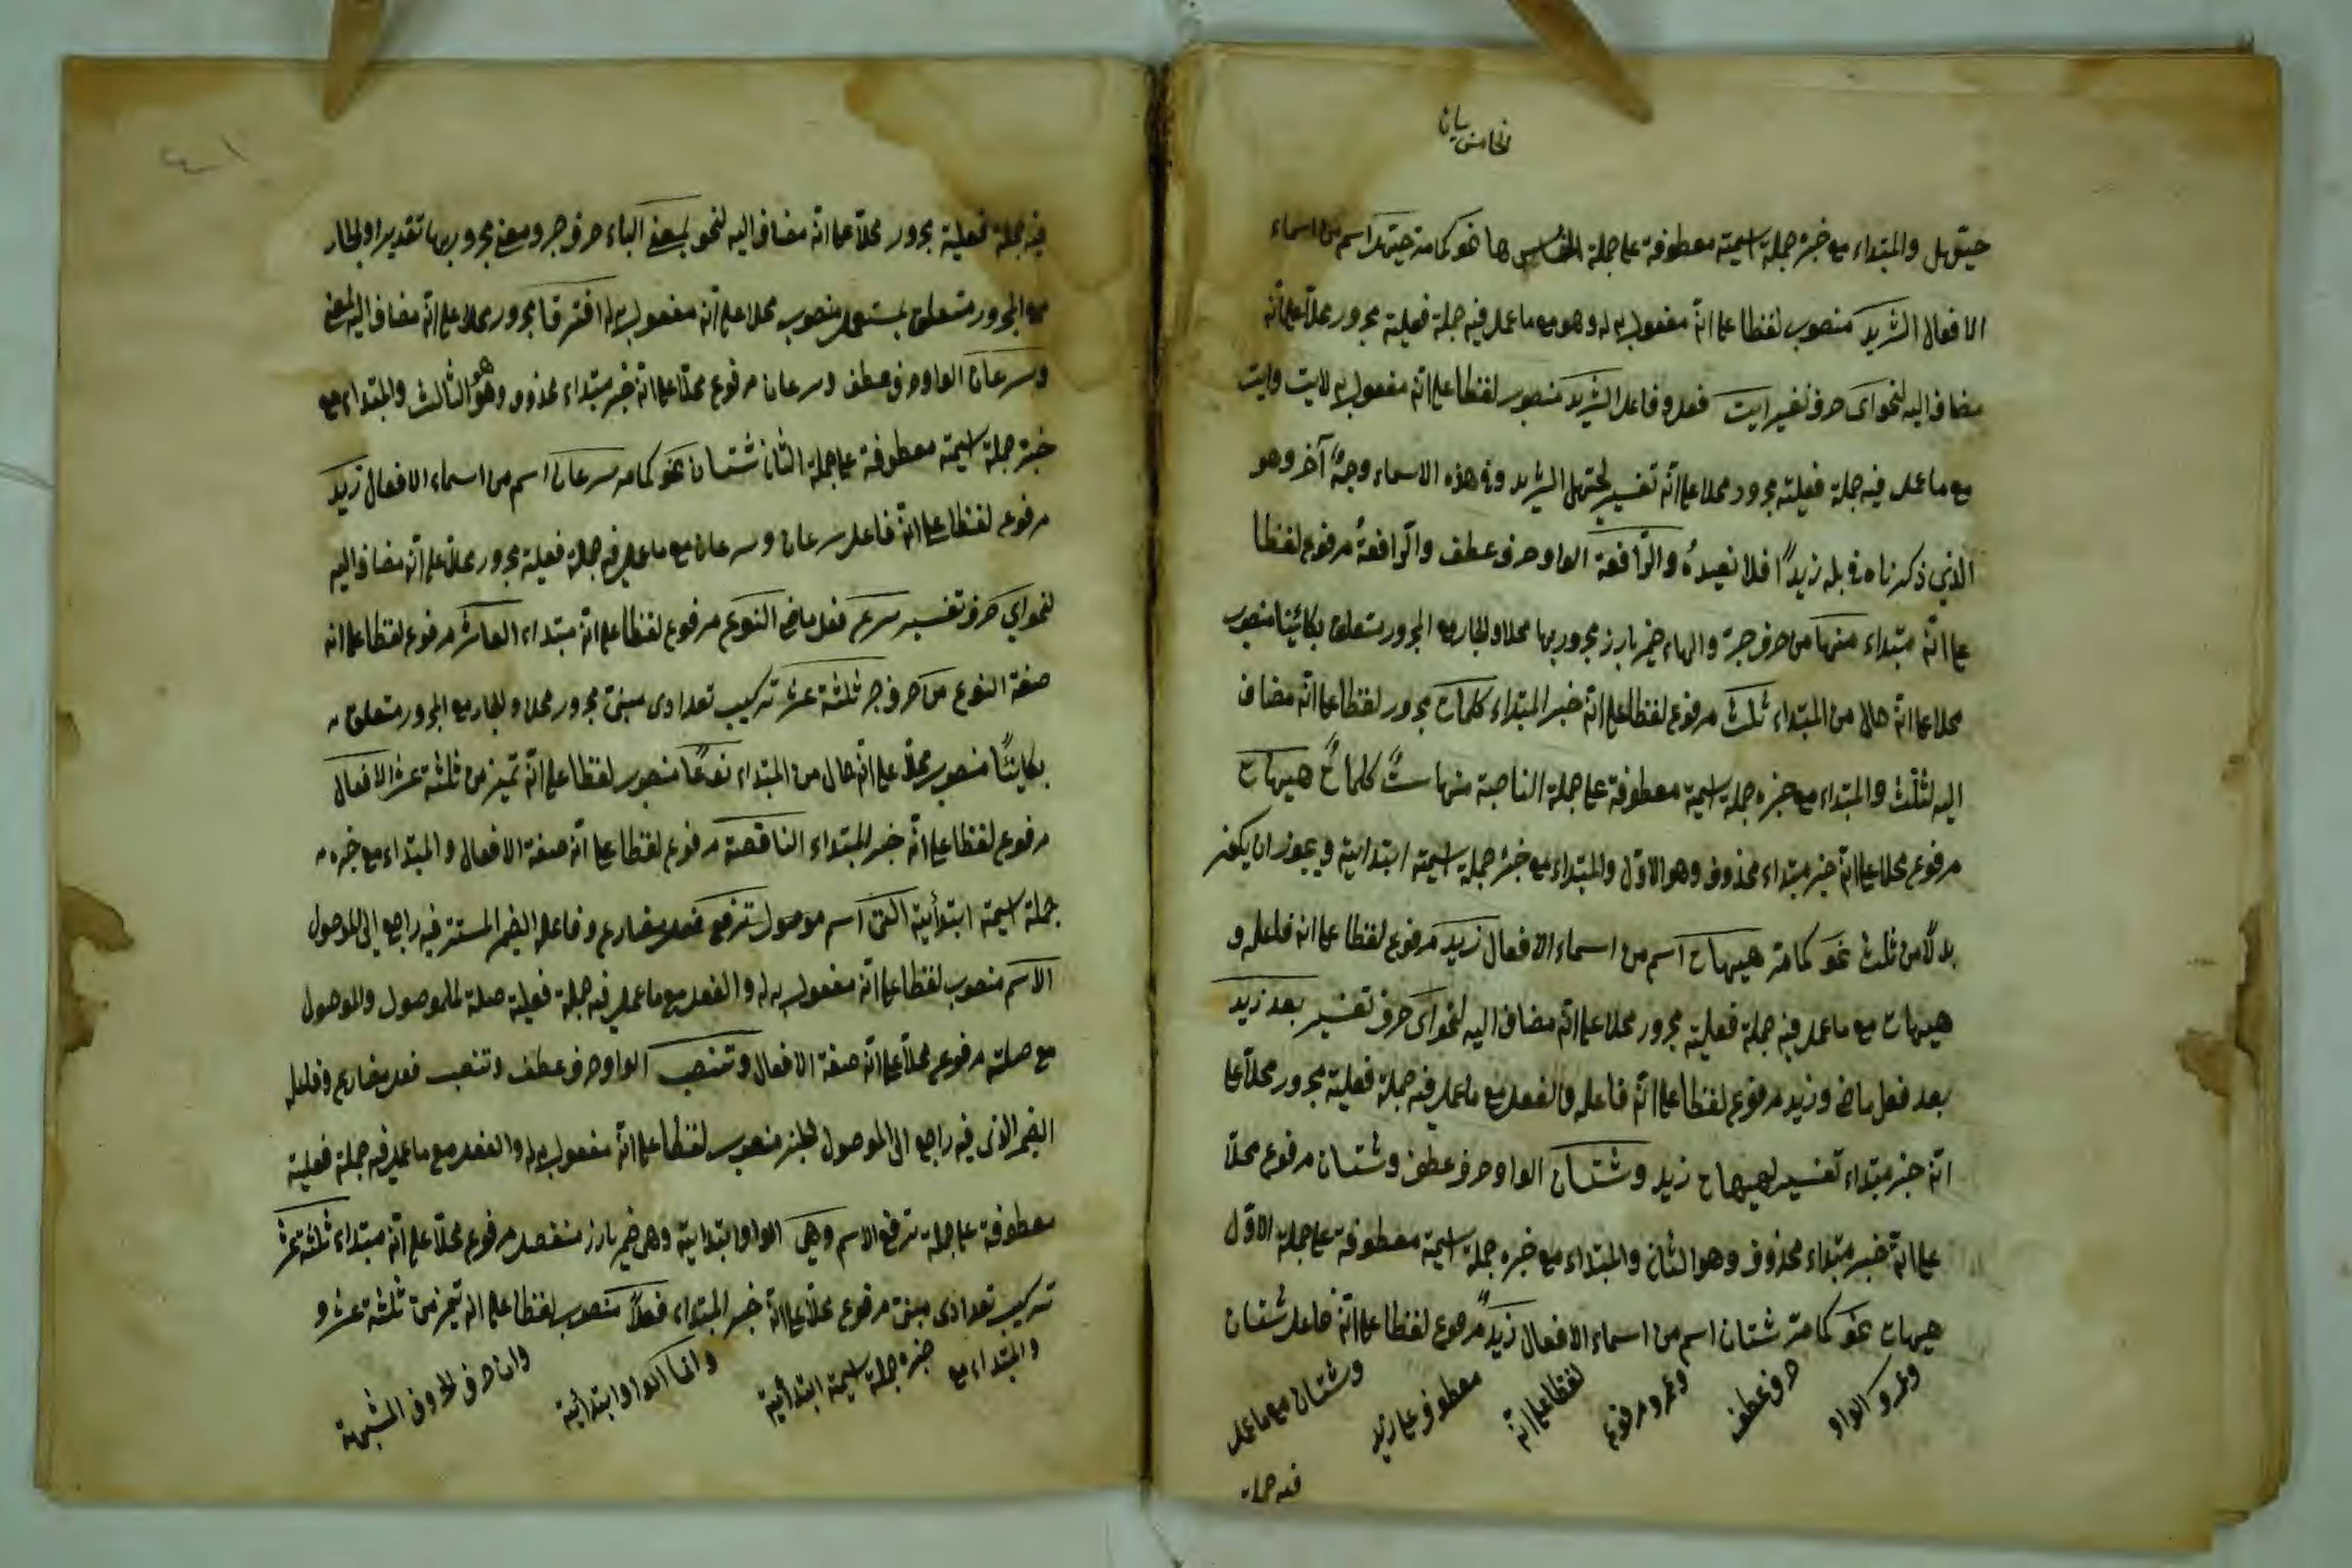 حيهل والمبتداء مع خبره جملة اسمية معطوفة على جملة الخامس ها نحو كما مر حيهل اسم من اسماء
الافعال الثريد منصوب لفظا على انه مفعول به له وهو مع ما عمل فيه جملة فعلية مجرور محلا على انه
مضاف اليه لنحو اى حرف تفسير ايت فعل وفاعل الثريد منصوب لفظا على انه مفعول به لايت وايت
مع ما عمل فيه جملة فعلية مجرور محلا على انه تفسير لحيهل الثريد وفي هذه الاسماء وجهٌ آخر وهو
الذي ذكرناه في بله زيدًا فلا نعيدهُ والرّافعة الواو حرف عطف والرّافعةُ مرفوع لفظا
على انه مبتداء منها من حرف جر والهاء ضمير بارز مجرور بها محلا والجار مع المجرور متعلق بكائنا منصوب
محلا على انه حال من المبتداء ثلث مرفوع لفظا على انه خبر المبتداء كلمات مجرور لفظا على انه مضاف
اليه لثلث والمبتداء مع خبره جملة اسمية معطوفة على جملة الناصبة منها ستٌ كلماتٌ هيهات
مرفوع محلا على انه خبر مبتداء محذوف وهو الاوّل والمبتداء مع خبره جملة اسمية ابتدائية ويجوز ان يكون
بدلاً من ثلث نحو كما مر هيهات اسم من اسماء الافعال زيد مرفوع لفظا على انه فاعله و
هيهات مع ما عمل فيه جملة فعلية مجرور محلا على انه مضاف اليه لنحو اى حرف تفسير بعد زيد
بعد فعل ماض وزيد مرفوع لفظا على انه فاعله والفعل مع ما عمل فيه جملة فعلية مجرور محلا على
انه خبر مبتداء تفسير لهيهات زيد وشتان الواو حرف عطف وشتان مرفوع محلاً
على انه خبر مبتداء محذوف وهو الثان والمبتداء مع خبره جملة اسمية معطوفة على جملة الاوّل
هيهات نحو كما مر شتان اسم من اسماء الافعال زيدٌ مرفوع لفظا على انه فاعل شتان
وعمرو الواو حرف عطف وعمرو مرفوع لفظا على انه معطوف على زيد وشتان مع ما عمل
فيه جملة
٤١
فيه جملة فعلية مجرور محلاً على انه مضاف اليه لنحو بمعنى الباء حرف جر ومعنى مجرور بها تقديرا والجار
مع المجرور متعلق بمستعمل منصوب محلا على انه مفعول به له افترقا مجرور محلا على انه مضاف اليه لمعنى
وسرعان الواو حرف عطف وسرعان مرفوع محلا على انه خبر مبتداء محذوف وهو الثالث والمبتداء مع
خبره جملة اسمية معطوفة على جملة الثان شتان نحو كما مر سرعان اسم من اسماء الافعال زيد
مرفوع لفظا على انه فاعل سرعان وسرعان مع ما عمل فيه جملة فعلية مجرور محلا على انه مضاف اليه
لنحو اي حرف تفسير سرع فعل ماض النوع مرفوع لفظا على انه مبتداء العاشر مرفوع لفظا على انه
صفة النوع من حرف جر ثلثة عشر تركيب تعدادى مبنى مجرور محلا والجار مع المجرور متعلق
بكائنًا منصوب محلاً على انه حال من المبتداء نوعًا منصوب لفظا على انه تميز من ثلثة عشر الافعال
مرفوع لفظا على انه خبر المبتداء الناقصة مرفوع لفظا على انه صفة الافعال والمبتداء مع خبره
جملة اسمية ابتدأية التى اسم موصول ترفع فعل مضارع وفاعله الضمير المستتر فيه راجع الى الموصول
الاسم منصوب لفظا على انه مفعول به له والفعل مع ما عمل فيه جملة فعلية صلة للموصول والموصول
مع صلته مرفوع محلاً على انه صفة الافعال وتنصب الواو حرف عطف وتنصب فعل مضارع وفاعله
الضمير الذى فيه راجع الى الموصول الخبر منصوب لفظا على انه مفعول به له والفعل مع ما عمل فيه جملة فعلية
معطوفة على جملة ترفع الاسم وهي الواو ابتدائية وهى ضمير بارز منفصل مرفوع محلا على انه مبتداء ثلثة عشر
تركيب تعدادى مبنى مرفوع محلاً على انه خبر المبتداء فعلاً منصوب لفظا على انه تميز من ثلثة عشر و
والمبتداء مع خبره جملة اسمية ابتدائية وانما الواو ابتدائية وان حرف من الحروف المشبهة